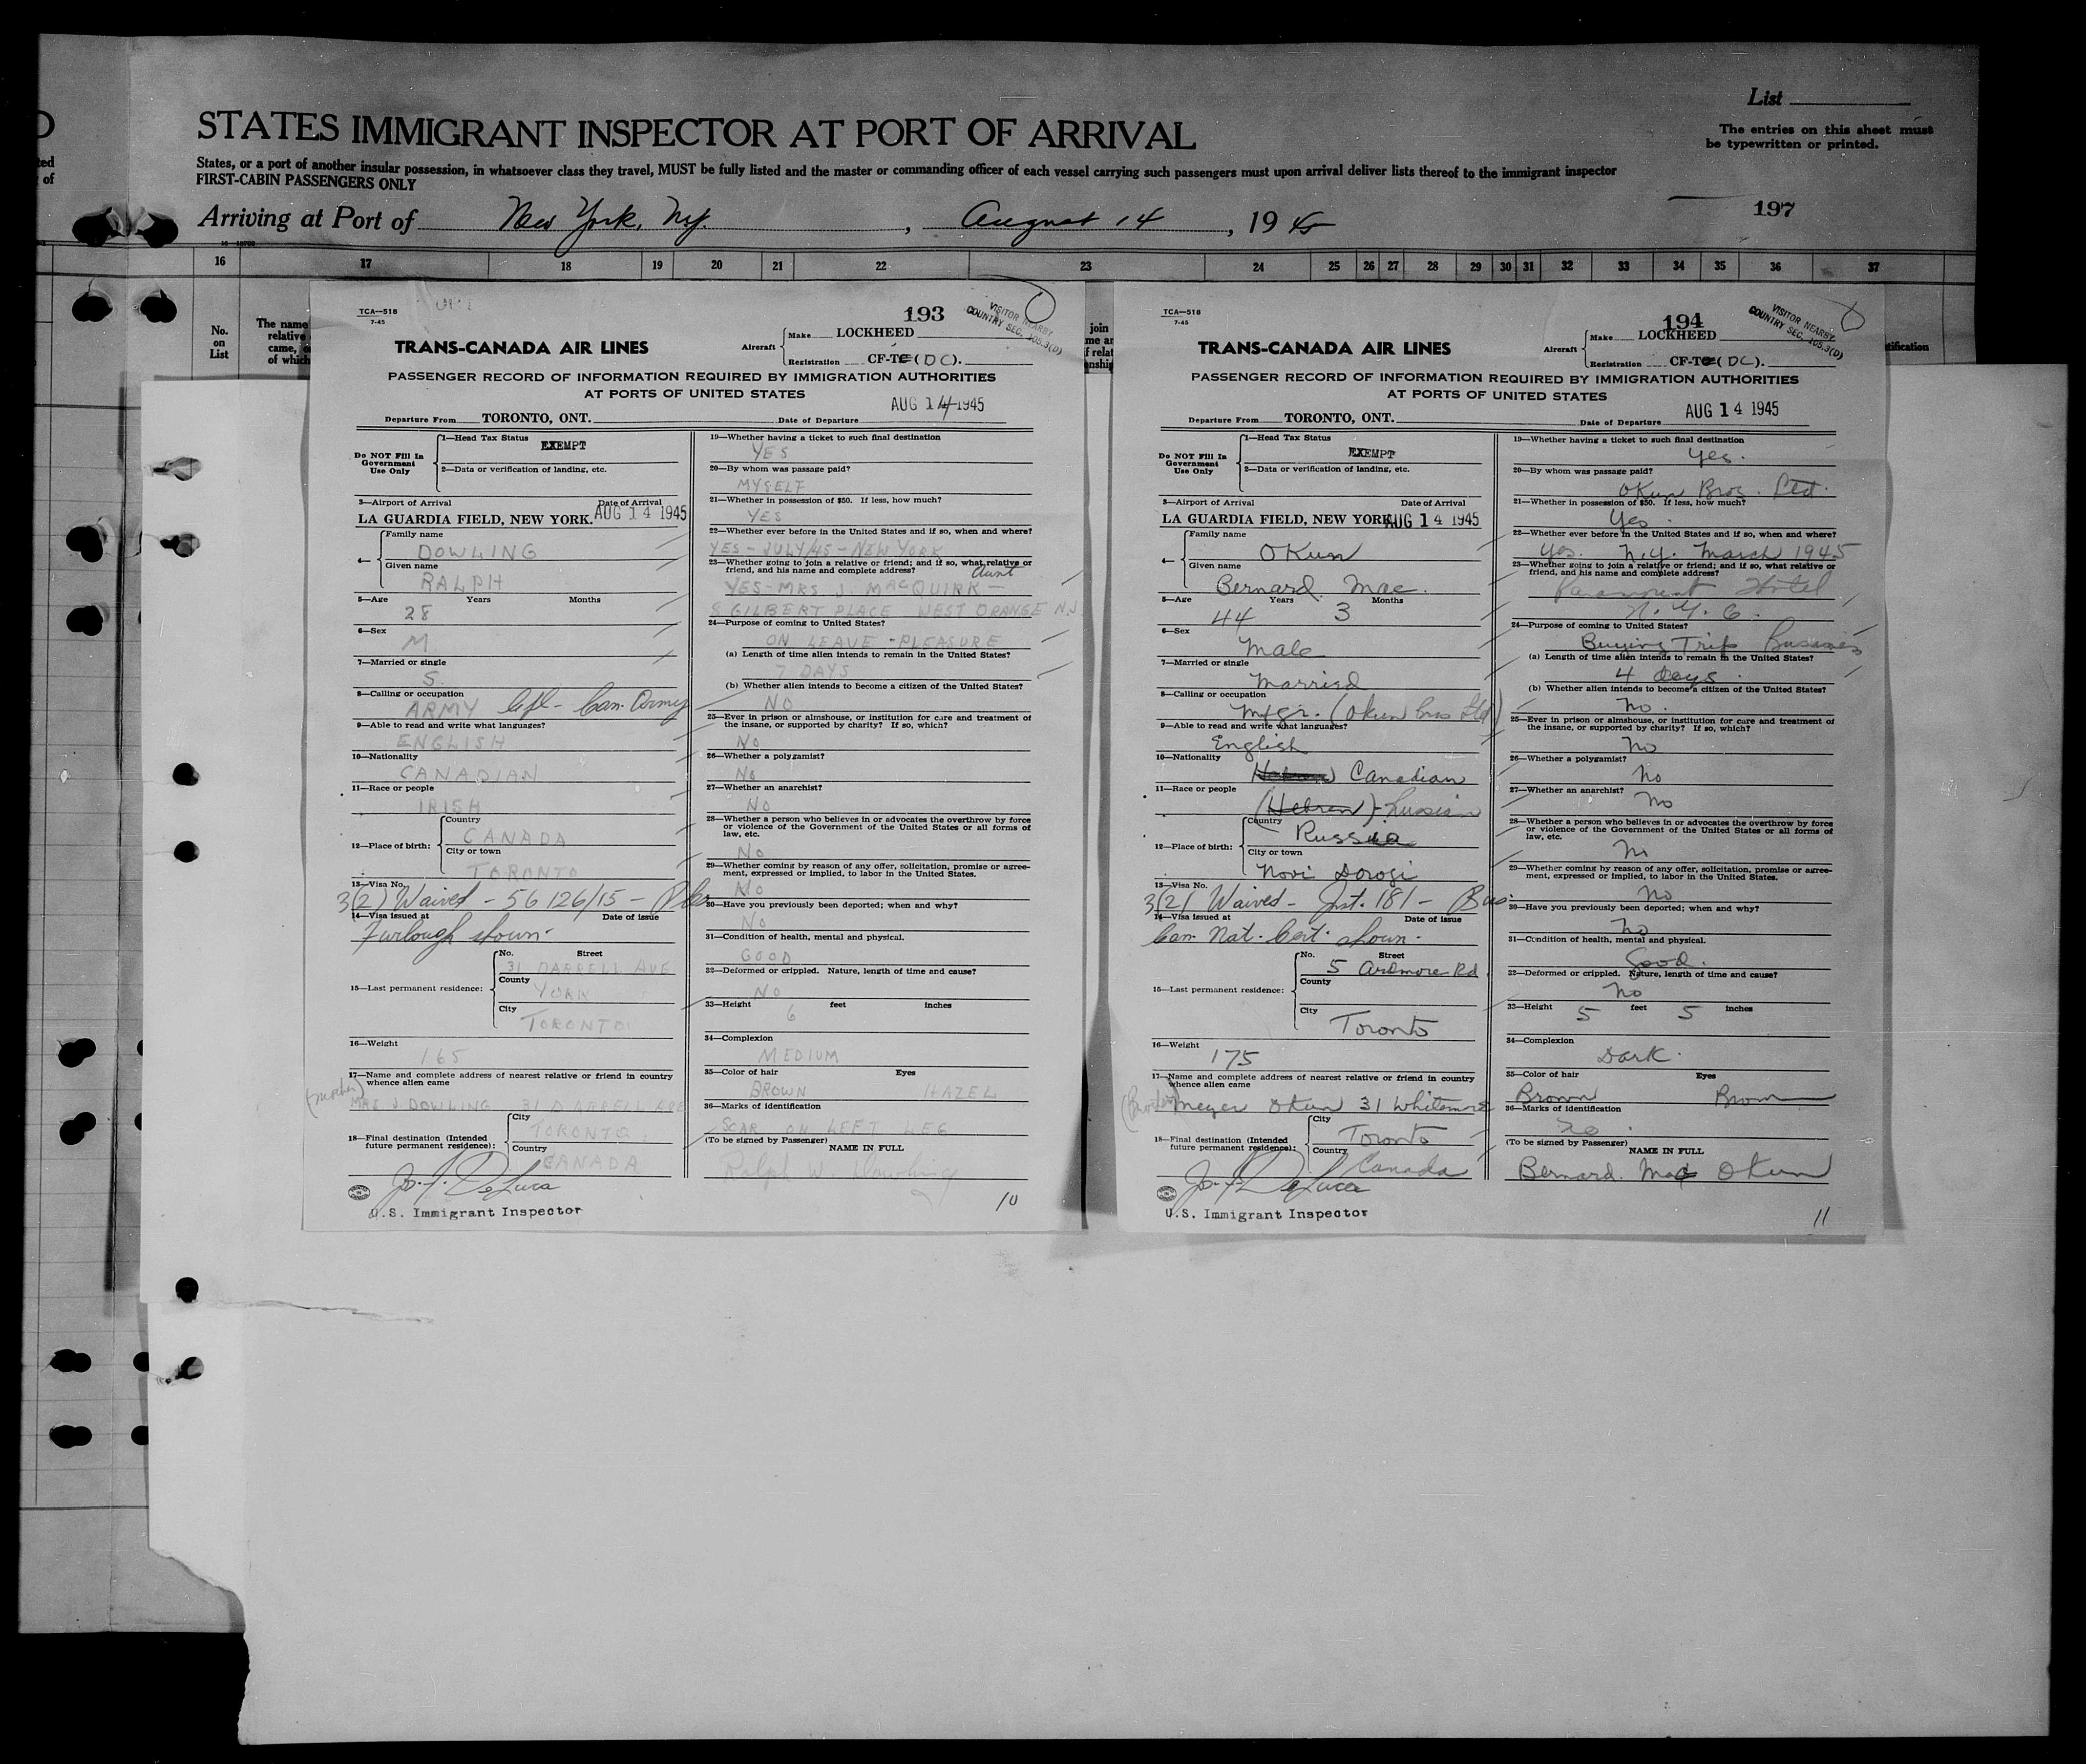 List
STATES IMMIGRANT INSPECTOR AT PORT OF ARRIVAL
The entries on this sheet must
be typewritten or printed.
States, or a port of another insular possession, in whatsoever class they travel, MUST be fully listed and the master or commanding officer of each vessel carrying such passengers must upon arrival deliver lists thereof to the immigrant inspector
FIRST-CABIN PASSENGERS ONLY
ted
of
197
Arriving at Port of New York, Ny. , August 14 , 19 45
16 17 18 19 20 21 22 23 24 25 26 27 28 29 30 31 32 33 34 35 36 37
No.
on
List
The name
relative
came,
of which
TCA—518
7-45
193
VISITOR NEARBY
COUNTRY SEC. 105.3(D)
TRANS-CANADA AIR LINES
Aircraft
Make LOCKHEED
Registration CF-TC (DC).
PASSENGER RECORD OF INFORMATION REQUIRED BY IMMIGRATION AUTHORITIES
AT PORTS OF UNITED STATES
Departure From TORONTO, ONT. Date of Departure AUG 14 1945
Do NOT Fill In
Government
Use Only
1—Head Tax Status EXEMPT
2—Data or verification of landing, etc.
3—Airport of Arrival Date of Arrival
LA GUARDIA FIELD, NEW YORK. AUG 14 1945
4— Family name
DOWLING
Given name
RALPH
5—Age Years Months
28
6—Sex
M
7—Married or single
S.
8—Calling or occupation
ARMY Cpl- Can. Army
9—Able to read and write what languages?
ENGLISH
10—Nationality
CANADIAN
11—Race or people
IRISH
12—Place of birth: Country
CANADA
City or town
TORONTO
13—Visa No.
3(2) Waived - 56126/15 -
14—Visa issued at Date of issue
Furlough shown-
15—Last permanent residence: No. Street
31 DARRELL AVE
County
YORK
City
TORONTO
16—Weight
165
17—Name and complete address of nearest relative or friend in country
whence alien came
(mother)
MRS J. DOWLING 31 DARRELL AVE
18—Final destination (Intended
future permanent residence): City
TORONTO
Country
CANADA
Jo. J. DeLuca
U.S. Immigrant Inspector
19—Whether having a ticket to such final destination
YES
20—By whom was passage paid?
MYSELF
21—Whether in possession of $50. If less, how much?
YES
22—Whether ever before in the United States and if so, when and where?
YES - JULY/45 - NEW YORK
23—Whether going to join a relative or friend; and if so, what relative or
friend, and his name and complete address? Aunt
YES - MRS J. MACQUIRK -
8 GILBERT PLACE WEST ORANGE N.J.
24—Purpose of coming to United States?
ON LEAVE - PLEASURE
(a) Length of time alien intends to remain in the United States?
7 DAYS
(b) Whether alien intends to become a citizen of the United States?
NO
25—Ever in prison or almshouse, or institution for care and treatment of
the insane, or supported by charity? If so, which?
No
26—Whether a polygamist?
No
27—Whether an anarchist?
NO
28—Whether a person who believes in or advocates the overthrow by force
or violence of the Government of the United States or all forms of
law, etc.
No
29—Whether coming by reason of any offer, solicitation, promise or agree-
ment, expressed or implied, to labor in the United States.
No
30—Have you previously been deported; when and why?
No
31—Condition of health, mental and physical.
GOOD
32—Deformed or crippled. Nature, length of time and cause?
No
33—Height feet inches
6
34—Complexion
MEDIUM
35—Color of hair Eyes
BROWN HAZEL
36—Marks of identification
SCAR ON LEFT LEG
(To be signed by Passenger) NAME IN FULL
Ralph W Dowling
10
join
TCA—518
7-45
194
VISITOR NEARBY
COUNTRY SEC. 105.3(D)
TRANS-CANADA AIR LINES
Aircraft
Make LOCKHEED
Registration CF-TC (DC).
PASSENGER RECORD OF INFORMATION REQUIRED BY IMMIGRATION AUTHORITIES
AT PORTS OF UNITED STATES
Departure From TORONTO, ONT. Date of Departure AUG 14 1945
Do NOT Fill In
Government
Use Only
1—Head Tax Status EXEMPT
2—Data or verification of landing, etc.
3—Airport of Arrival Date of Arrival
LA GUARDIA FIELD, NEW YORK. AUG 14 1945
4— Family name
Okun
Given name
Bernard. Mac.
5—Age Years Months
44 3
6—Sex
Male
7—Married or single
Married
8—Calling or occupation
Mfgr. (Okun Bros Ltd)
9—Able to read and write what languages?
English
10—Nationality
Canadian
11—Race or people
(Hebrew)-Russian
12—Place of birth: Country
Russia
City or town
Novi Dorogi
13—Visa No.
3(2) Waived - Inst. 181 - Bus.
14—Visa issued at Date of issue
Can. Nat. Cert. shown.
15—Last permanent residence: No. Street
5 Ardmore Rd.
County
City
Toronto
16—Weight
175
17—Name and complete address of nearest relative or friend in country
whence alien came
(Brother) Meyer Okun 31 Whitemore
18—Final destination (Intended
future permanent residence): City
Toronto
Country
Canada
Jo. J. DeLuca
U.S. Immigrant Inspector
19—Whether having a ticket to such final destination
yes.
20—By whom was passage paid?
Okun Bros. Ltd.
21—Whether in possession of $50. If less, how much?
Yes.
22—Whether ever before in the United States and if so, when and where?
yes. N.Y. March 1945
23—Whether going to join a relative or friend; and if so, what relative or
friend, and his name and complete address?
Paramount Hotel
N.Y.C.
24—Purpose of coming to United States?
Buying Trip Business
(a) Length of time alien intends to remain in the United States?
4 days.
(b) Whether alien intends to become a citizen of the United States?
no.
25—Ever in prison or almshouse, or institution for care and treatment of
the insane, or supported by charity? If so, which?
no
26—Whether a polygamist?
no
27—Whether an anarchist?
no
28—Whether a person who believes in or advocates the overthrow by force
or violence of the Government of the United States or all forms of
law, etc.
no
29—Whether coming by reason of any offer, solicitation, promise or agree-
ment, expressed or implied, to labor in the United States.
no
30—Have you previously been deported; when and why?
no
31—Condition of health, mental and physical.
Good.
32—Deformed or crippled. Nature, length of time and cause?
no
33—Height feet inches
5 5
34—Complexion
Dark.
35—Color of hair Eyes
Brown Brown
36—Marks of identification
no.
(To be signed by Passenger) NAME IN FULL
Bernard. Mac Okun
11